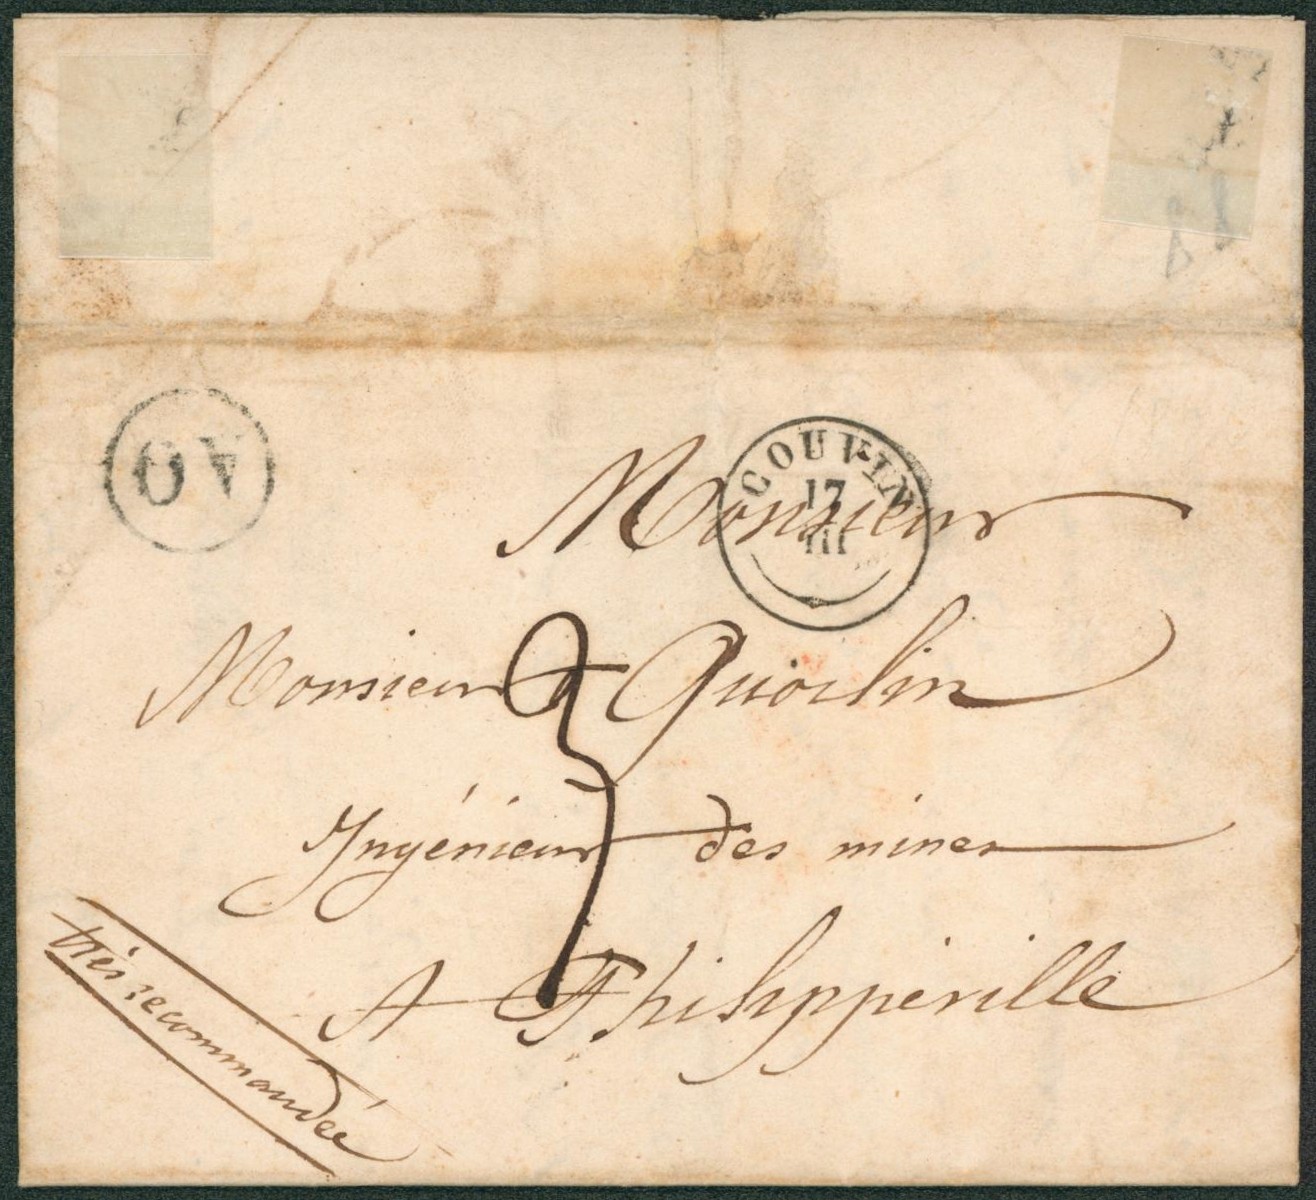 AO
COUVIN
17
III
Monsieur
Monsieur Quoilin
3
Ingénieur des mines
A Philippeville
très recommandée